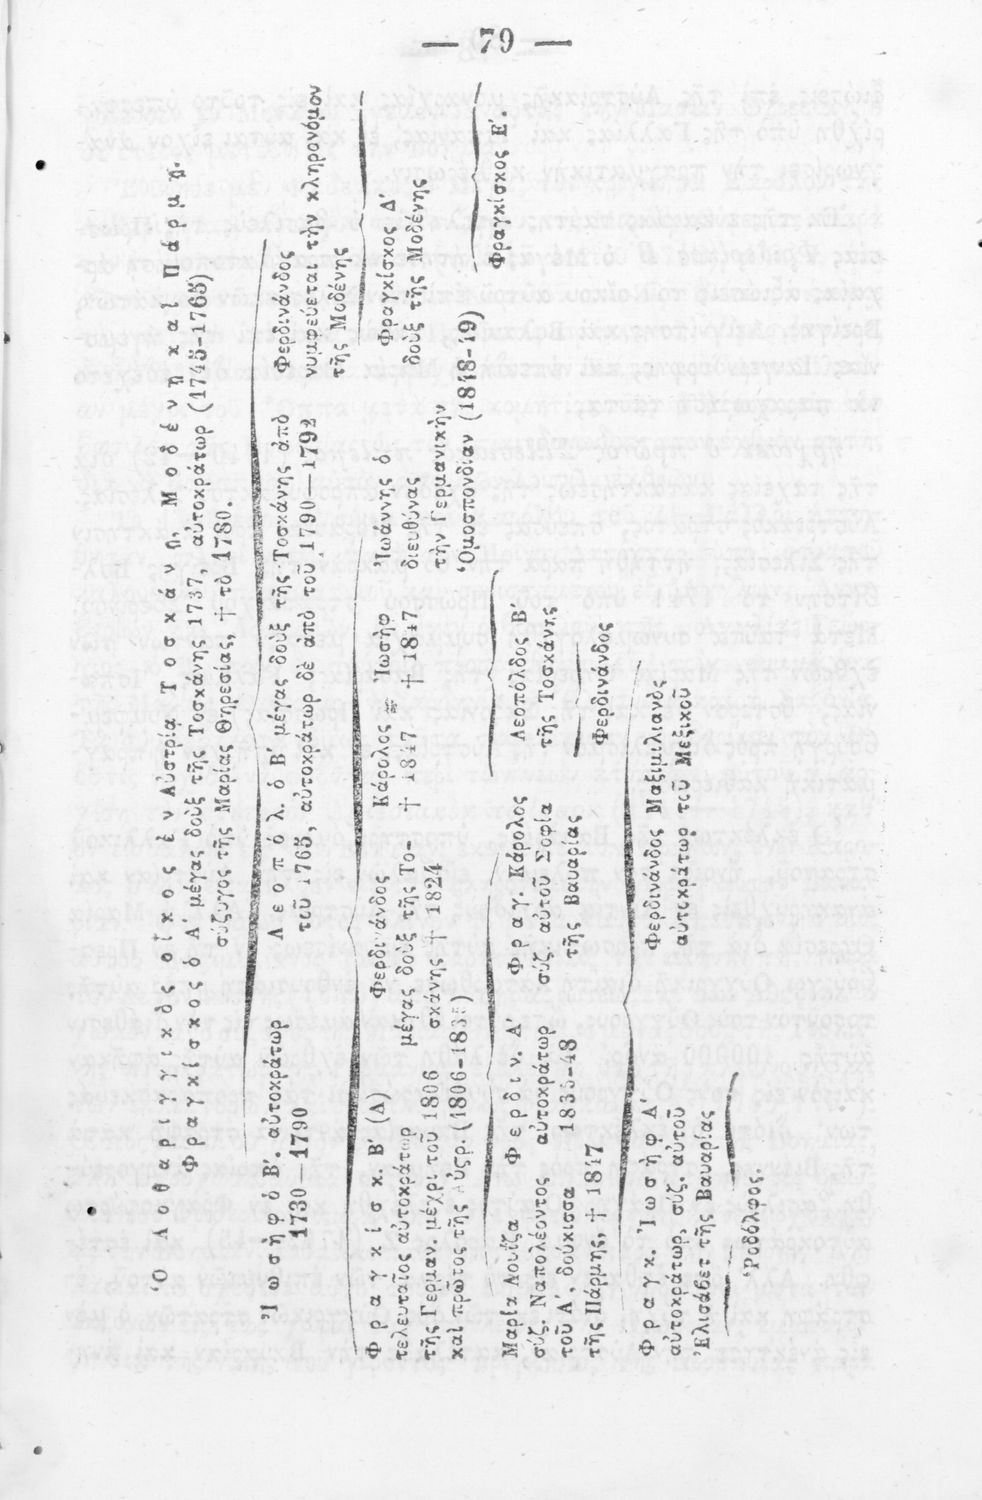 — 79 —
Ὁ Λοθαριγγικὸς οἶκος ἐν Αὐστρίᾳ Τοσκάνῃ, Μοδένῃ καὶ Πάρμᾳ.
Φραγκίσκος ὁ Α΄ μέγας δοὺξ τῆς Τοσκάνης 1737, αὐτοκράτωρ (1745-1765)
σύζυγος τῆς Μαρίας Θηρεσίας, † τὸ 1780.
Ἰωσὴφ ὁ Β΄. αὐτοκράτωρ
1730—1790
Λεοπόλ. ὁ Β΄ μέγας δοὺξ τῆς Τοσκάνης ἀπὸ
τοῦ 1765, αὐτοκράτωρ δὲ ἀπὸ τοῦ 1790—1792
Φερδινάνδος
νυμφεύεται τὴν κληρονόμον
τῆς Μοδένης
Φραγκίσκ. Β΄ (Α)
τελευταῖος αὐτοκράτωρ
τῆς Γερμαν. μέχρι τοῦ 1806
καὶ πρῶτος τῆς Αὐςρ. (1806-1835)
Φερδινάνδος
μέγας δοὺξ τῆς Το-
σκάνης † 1824
Κάρολος
† 1847
Ἰωσὴφ
† 1847
Ἰωάννης ὁ
διευθύνας
τὴν Γερμανικὴν
Ὁμοσπονδίαν (1848-19)
Φραγκίσκος Δ΄
δοὺξ τῆς Μοδένης
Φραγκίσκος Ε΄.
Μαρία Λουΐζα
σύζ. Ναπολέοντος
τοῦ Α΄, δούκισσα
τῆς Πάρμης, † 1847
Φερδιν. Α΄
αὐτοκράτωρ
1835-48
Φραγ. Κάρολος
σύζ. αὐτοῦ Σοφία
τῆς Βαυαρίας
Λεοπόλδος Β΄
τῆς Τοσκάνης
Φερδινάνδος
Φραγκ. Ἰωσὴφ Α΄
αὐτοκράτωρ. σύζ. αὐτοῦ
Ἐλισάβετ τῆς Βαυαρίας
Φερδινάνδος Μαξιμιλιανὸς
αὐτοκράτωρ τοῦ Μεξικοῦ
Ῥοδόλφος.